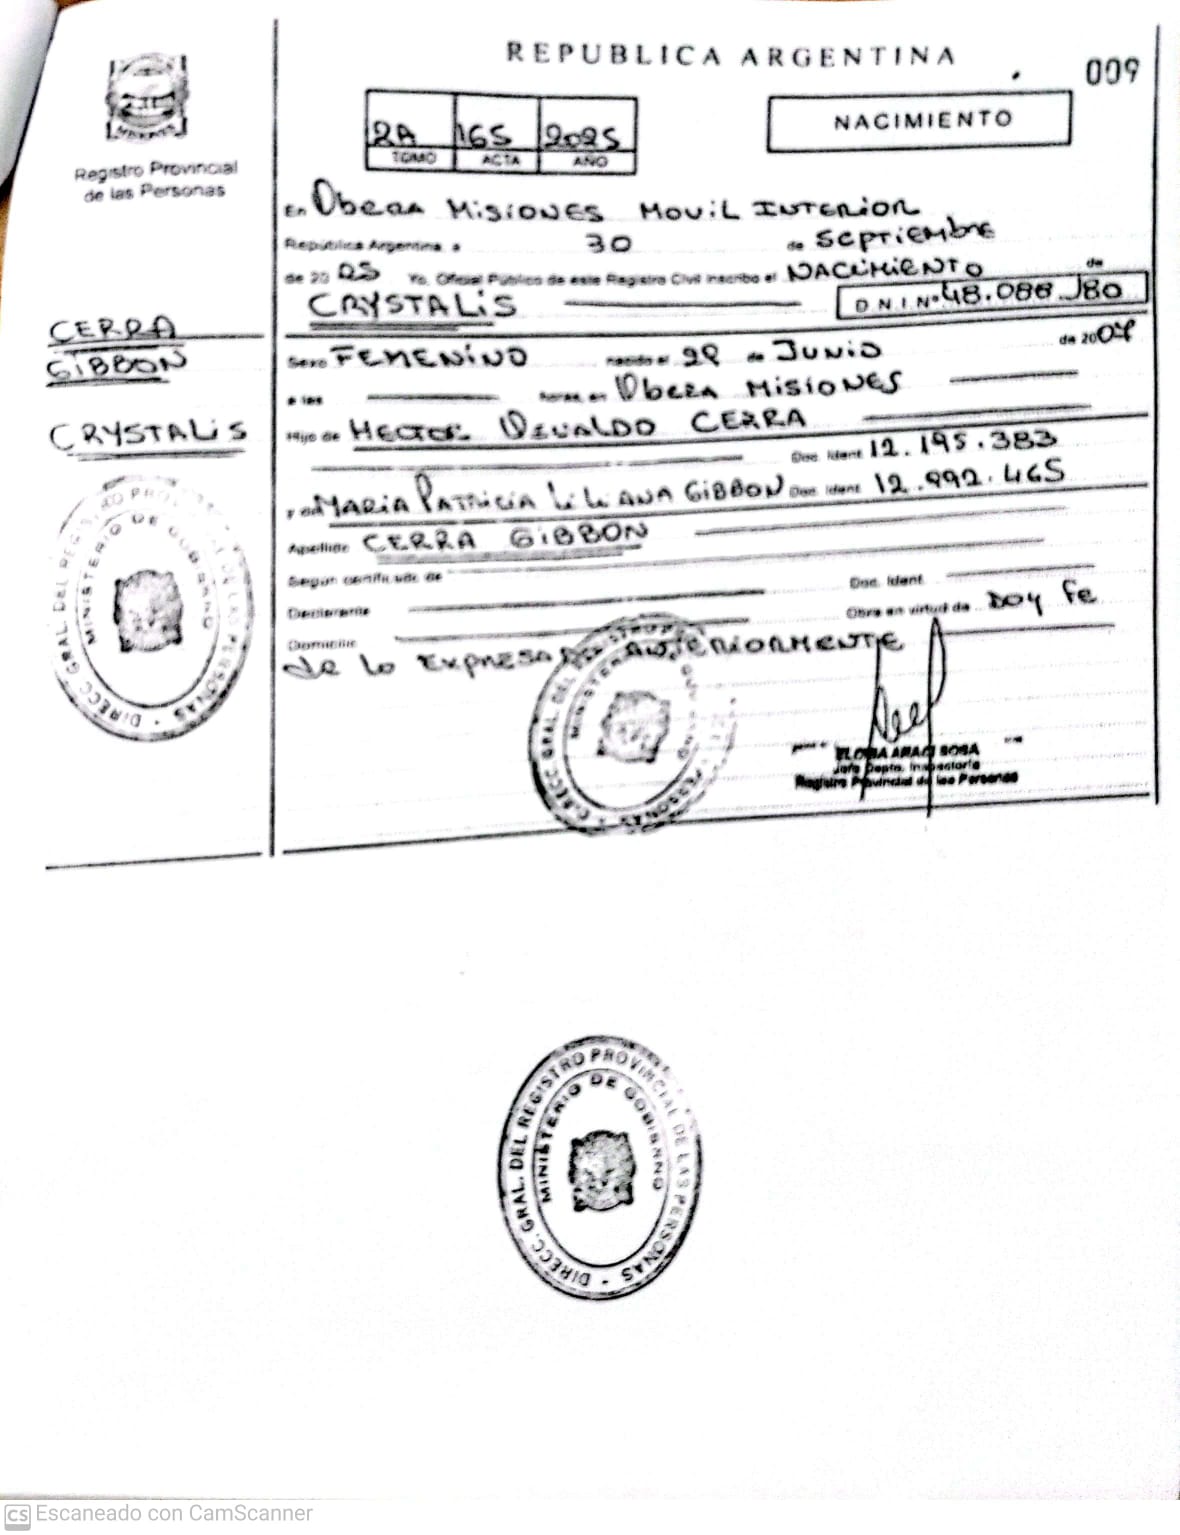 REPUBLICA ARGENTINA
009
Registro Provincial
de las Personas
2A 165 2025
TOMO ACTA AÑO
NACIMIENTO
En Obera Misiones Movil Interior
República Argentina a 30 de Septiembre
de 20 25 Yo, Oficial Público de este Registro Civil inscribo el NACIMIENTO de
CRYSTALiS D.N.I.Nº 48.088.180
CERRA
GIBBON
CRYSTALiS
Sexo FEMENINO nacido el 29 de Junio de 2007
a las horas en Obera Misiones
Hijo de HECTOR OSVALDO CERRA
Doc. Ident 12.195.383
y de MARIA PATRICIA LILIANA GIBBON Doc. Ident 12.992.465
Apellido CERRA GIBBON
Según certificado de Doc. Ident.
Declarante Obra en virtud de Doy Fe
Domicilio
de lo EXPRESADO ANTERIORMENTE
ARACI SOSA
Jefe Depto. Inspectoría
Registro Provincial de las Personas
DIRECC. GRAL. DEL REGISTRO PROVINCIAL DE LAS PERSONAS
MINISTERIO DE GOBIERNO
DIRECC. GRAL. DEL REGISTRO PROVINCIAL DE LAS PERSONAS
MINISTERIO DE GOBIERNO
DIRECC. GRAL. DEL REGISTRO PROVINCIAL DE LAS PERSONAS
MINISTERIO DE GOBIERNO
CS Escaneado con CamScanner